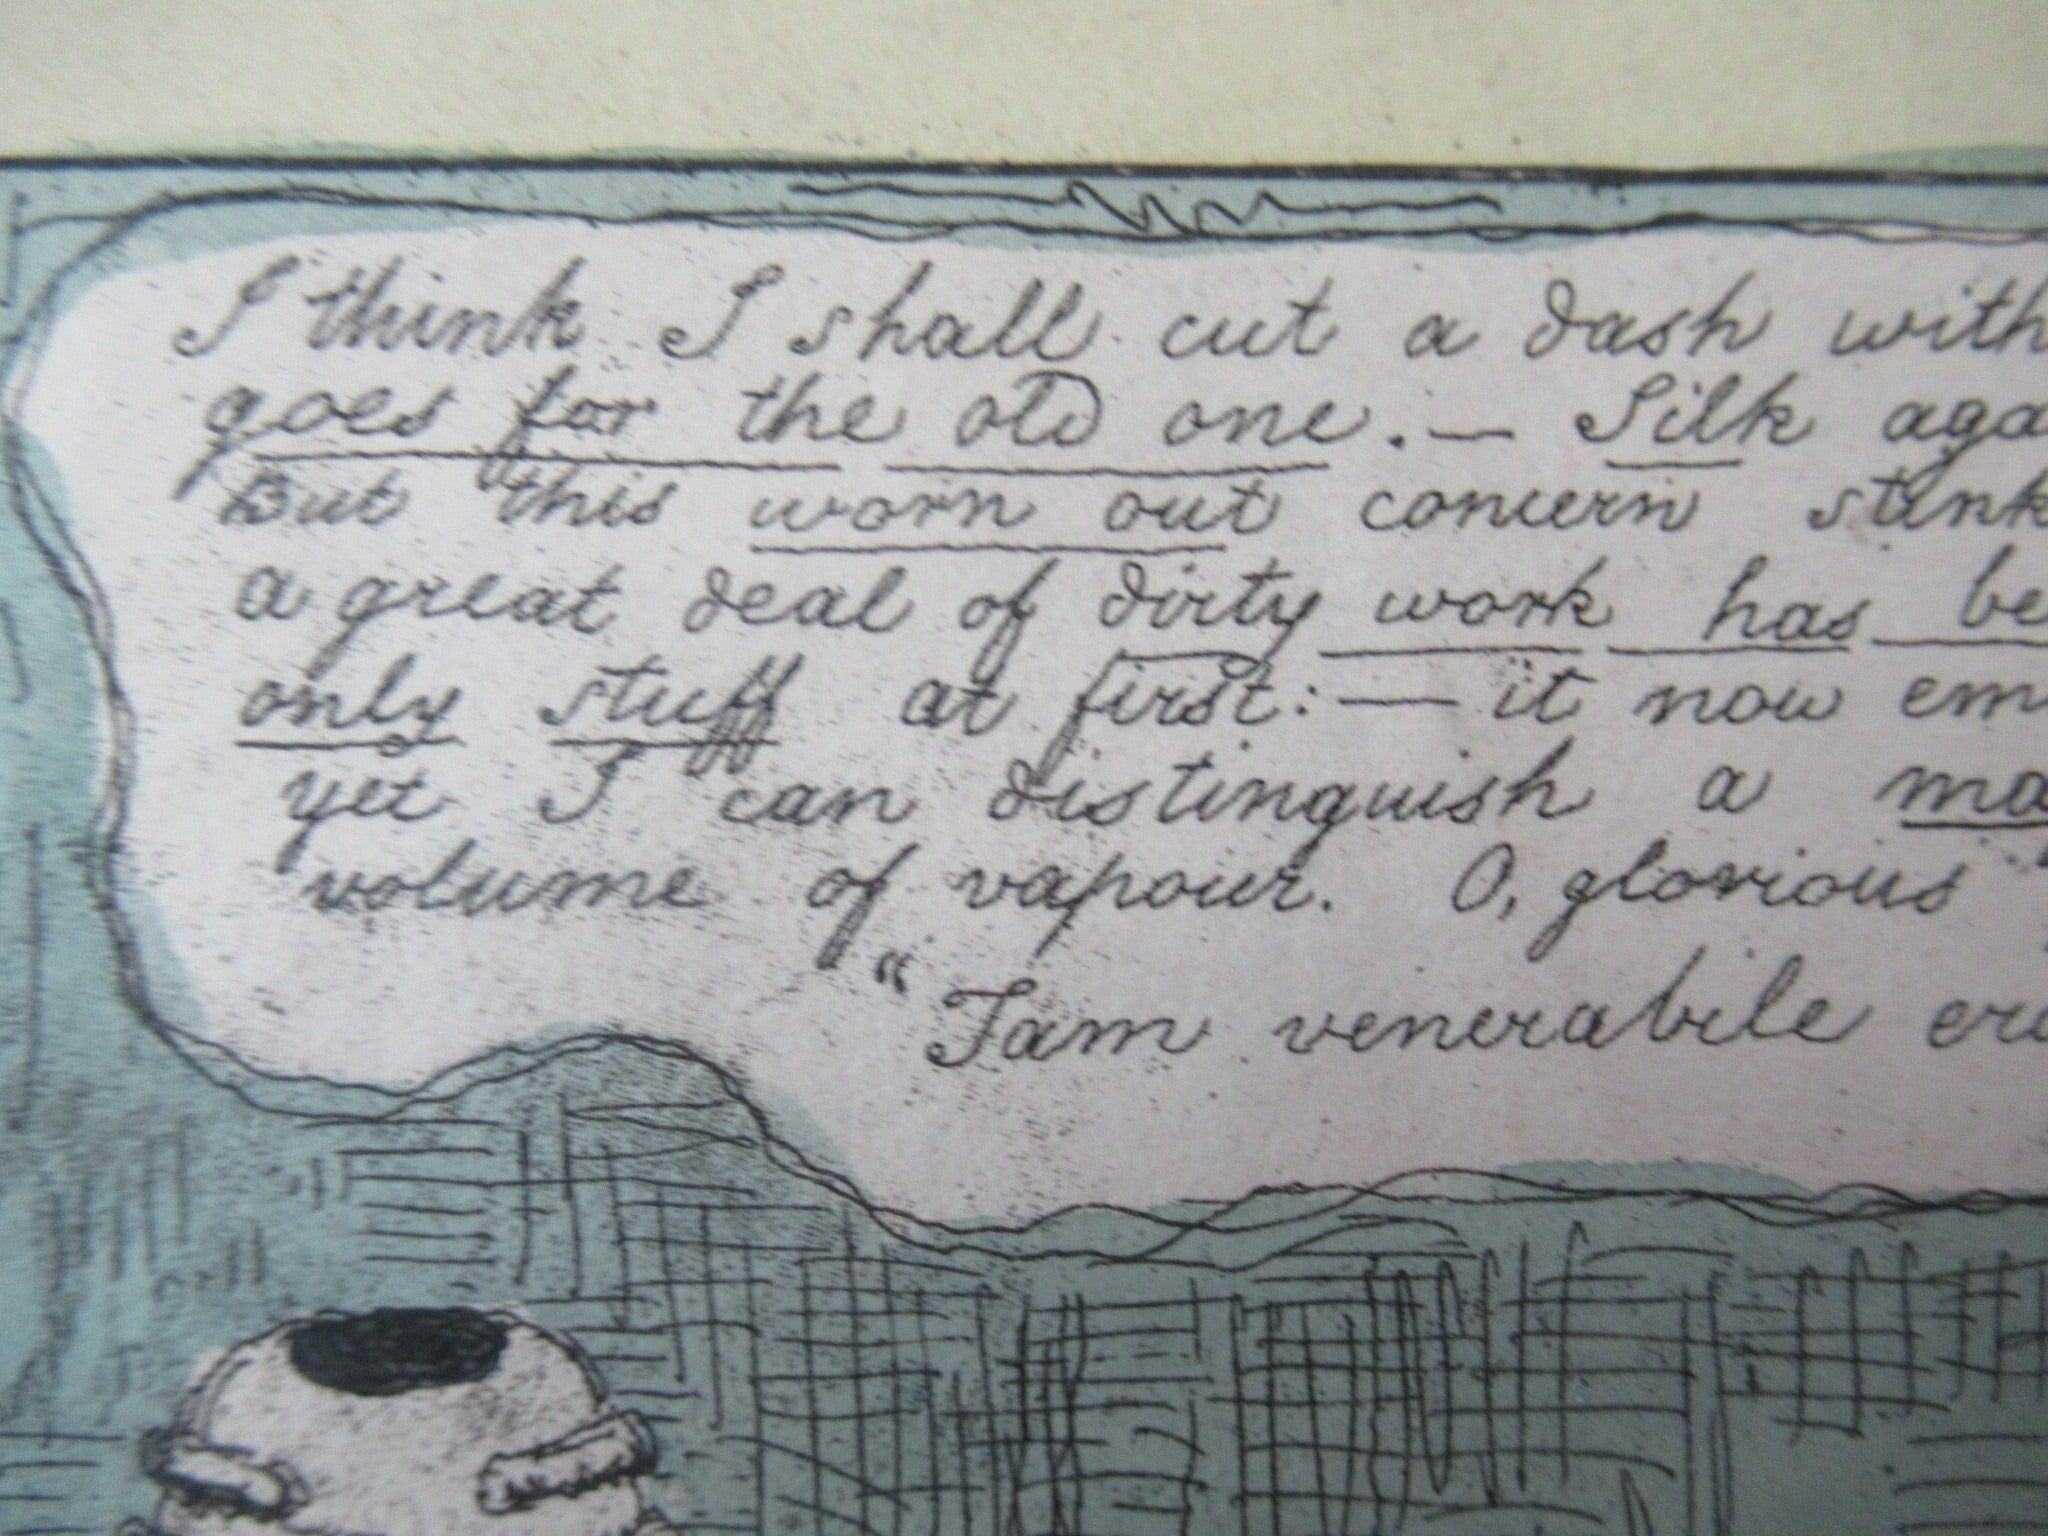 I think I shall cut a dash with
goes for the old one. — Silk aga
But this worn out concern stink
a great deal of dirty work has be
only stuff at first: — it now em
yet I can distinguish a ma
volume of vapour. O, glorious
"Jam venerabile er